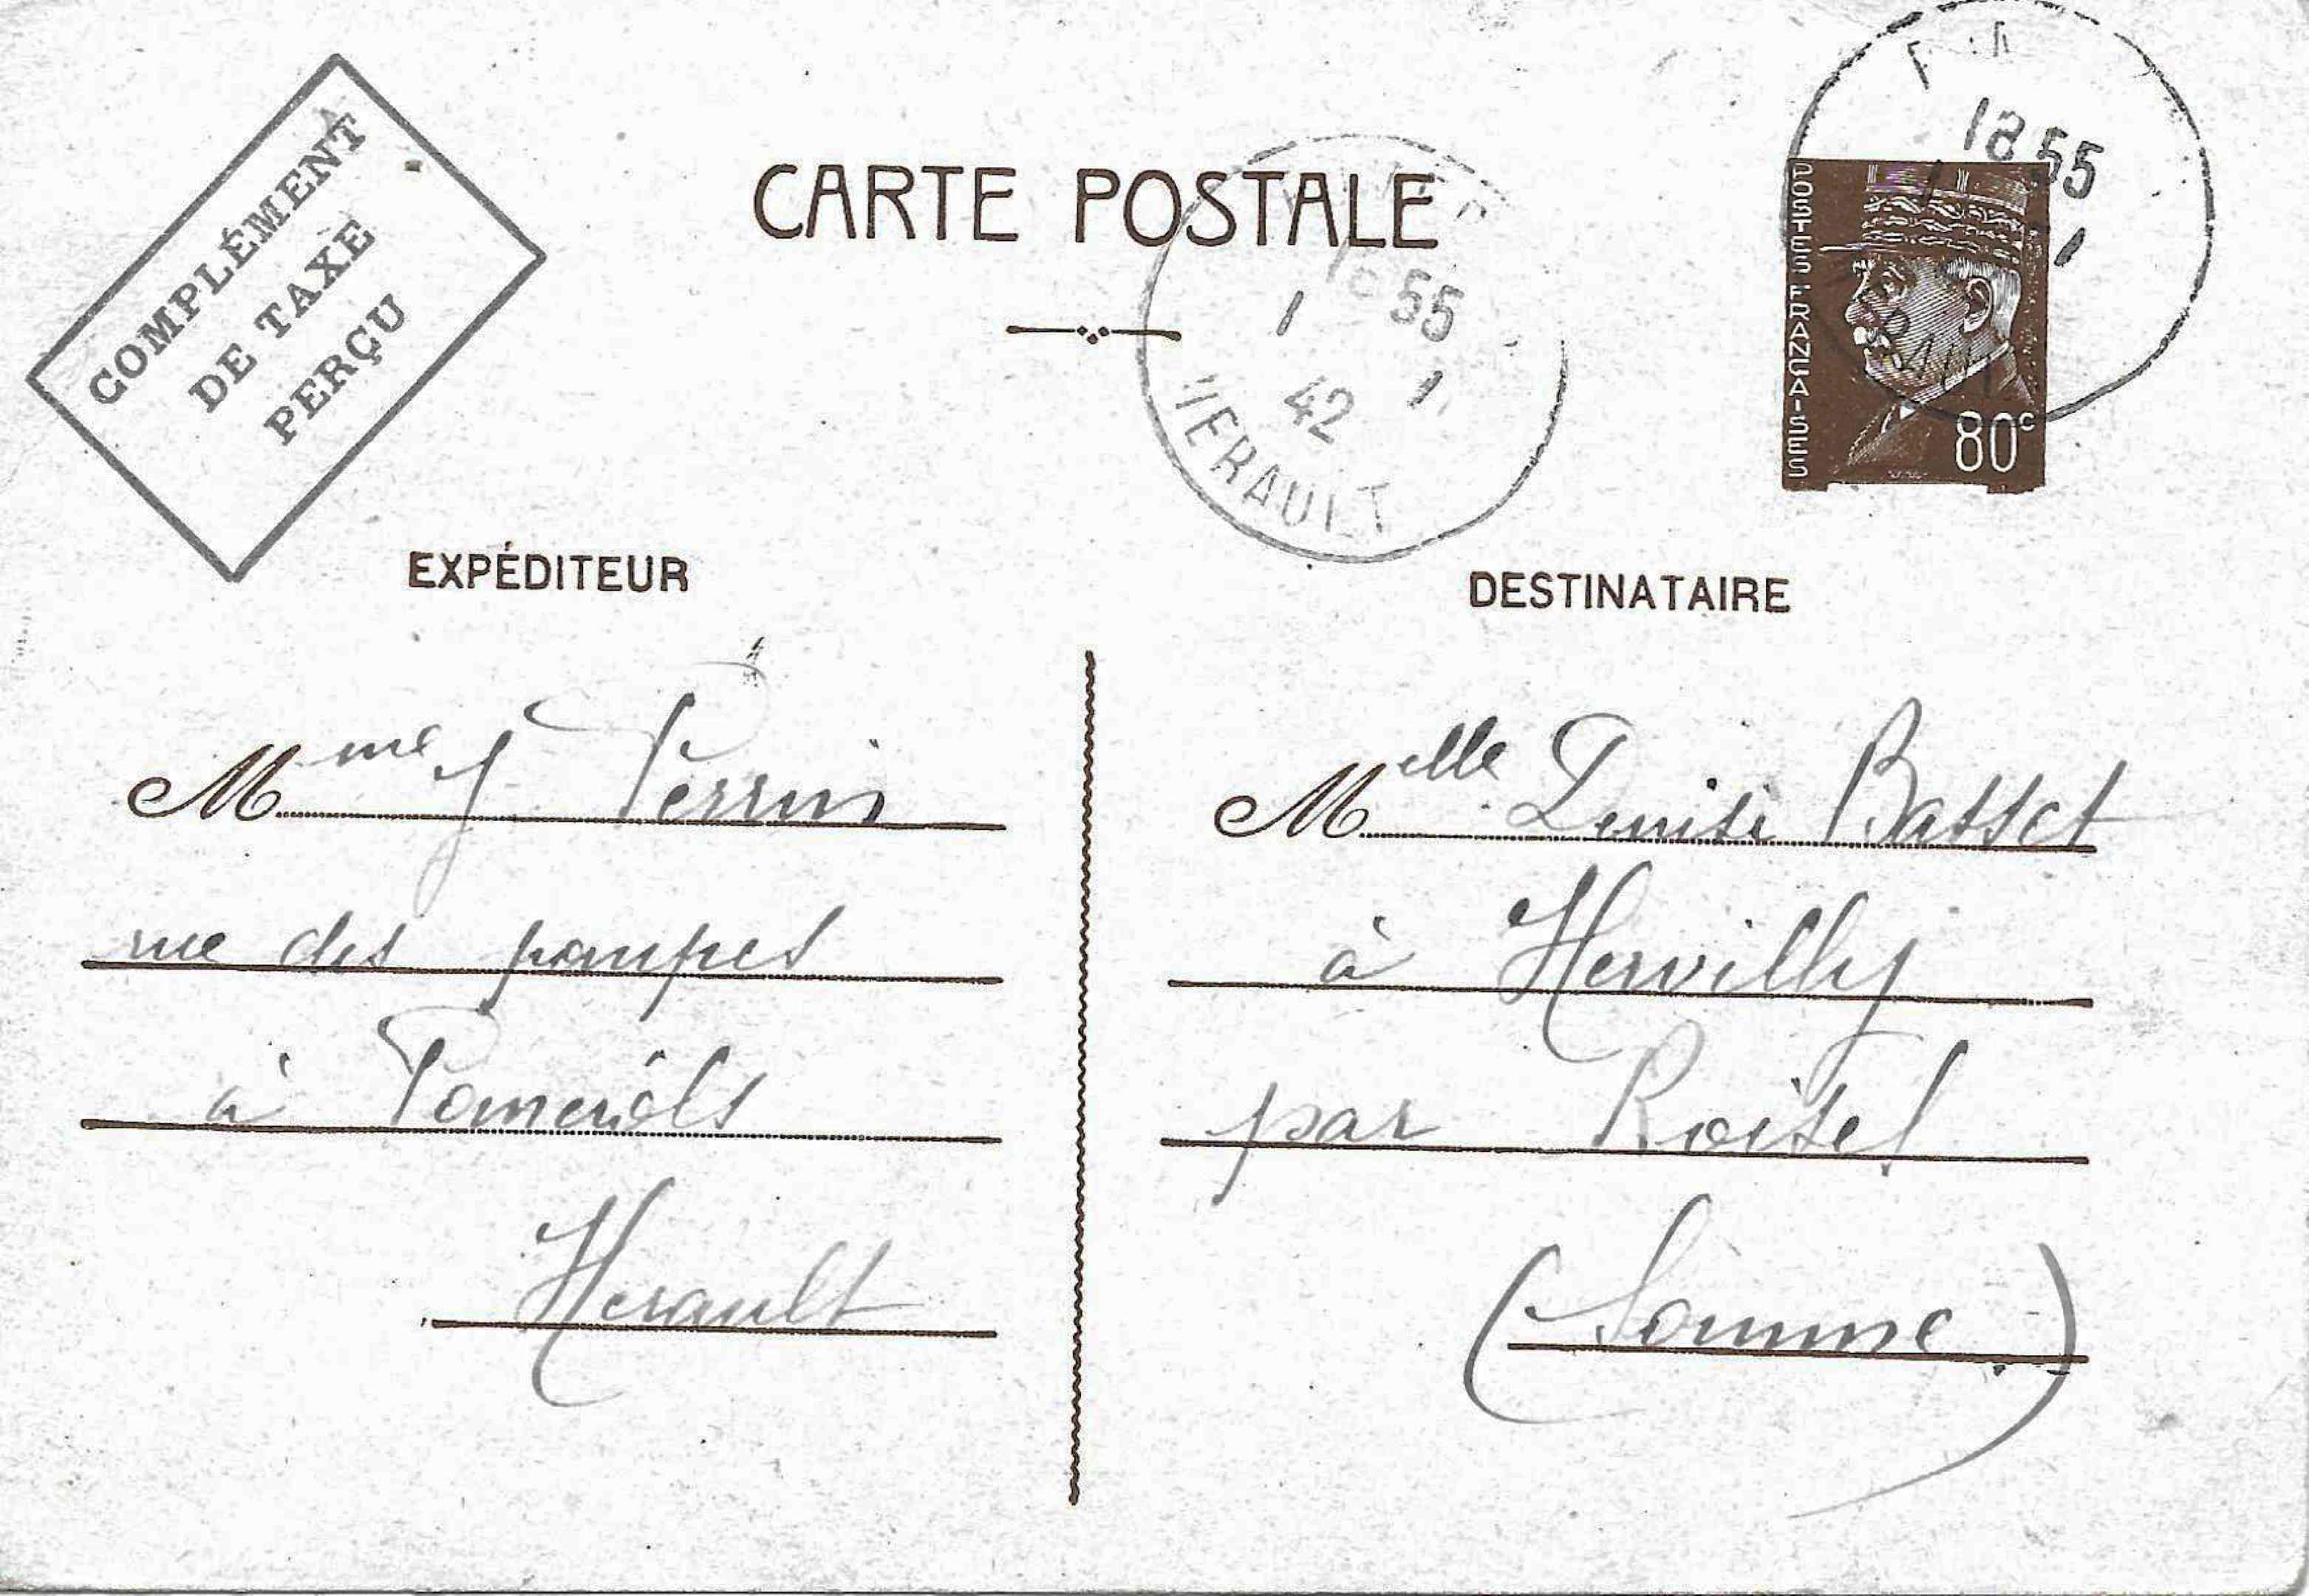 COMPLÉMENT
DE TAXE
PERÇU
CARTE POSTALE
55
1 1
42
HERAULT
18 55
1
POSTES FRANÇAISES
80c
EXPÉDITEUR
Mme J Perrin
rue des pompes
à Pomerols
Herault
DESTINATAIRE
Melle Denise Basset
à Hervilly
par Roisel
(Somme)